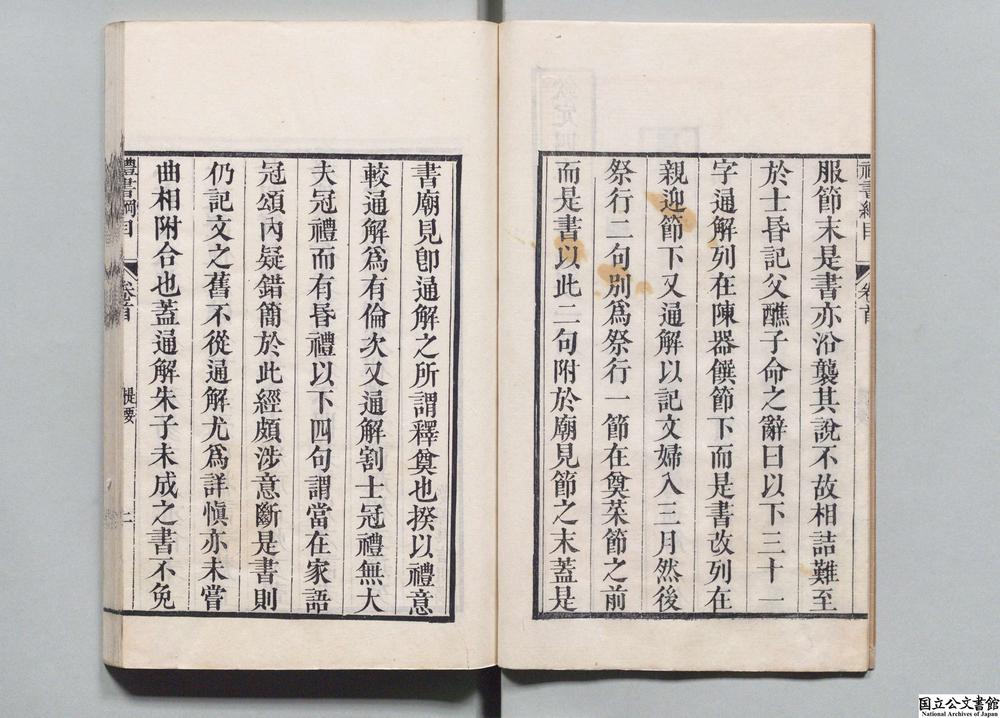 禮書綱目
卷首
服節末是書亦沿襲其說不故相詰難至
於士昏記父醮子命之辭曰以下三十一
字通解列在陳器饌節下而是書改列在
親迎節下又通解以記文婦入三月然後
祭行二句別為祭行一節在奠菜節之前
而是書以此二句附於廟見節之末蓋是
書廟見卽通解之所謂釋奠也揆以禮意
較通解為有倫次又通解割士冠禮無大
夫冠禮而有昏禮以下四句謂當在家語
冠頌內疑錯簡於此經頗涉意斷是書則
仍記文之舊不從通解尤為詳愼亦未嘗
曲相附合也蓋通解朱子未成之書不免
禮書綱目
卷首
提要
二
国立公文書館
National Archives of Japan